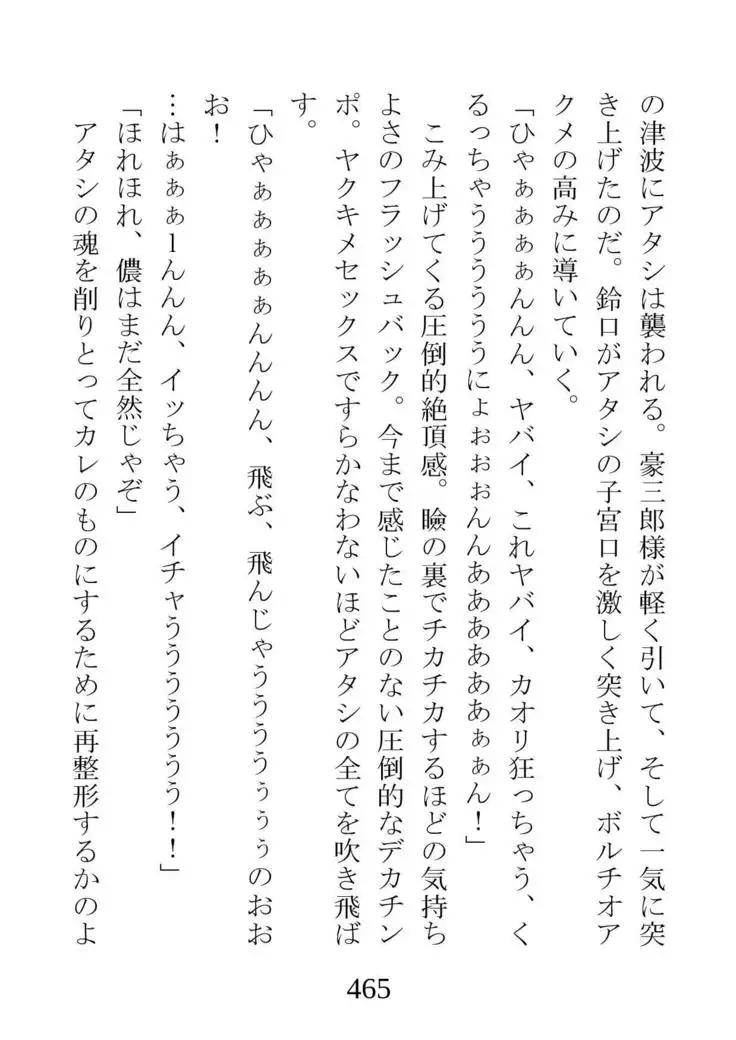 の津波にアタシは襲われる。豪三郎様が軽く引いて、そして一気に突
き上げたのだ。鈴口がアタシの子宮口を激しく突き上げ、ボルチオア
クメの高みに導いていく。
「ひゃぁぁぁぁんんん、ヤバイ、これヤバイ、カオリ狂っちゃう、く
るっちゃうううううううにょぉぉぉんんああああああああぁぁん！」
こみ上げてくる圧倒的絶頂感。瞼の裏でチカチカするほどの気持ち
よさのフラッシュバック。今まで感じたことのない圧倒的なデカチン
ポ。ヤクキメセックスですらかなわないほどアタシの全てを吹き飛ば
す。
「ひゃぁぁぁぁぁぁんんんん、飛ぶ、飛んじゃうううううぅぅぅのおお
お！
…はぁぁぁlんんん、イッちゃう、イチャううううううう！！」
「ほれほれ、儂はまだ全然じゃぞ」
アタシの魂を削りとってカレのものにするために再整形するかのよ
465